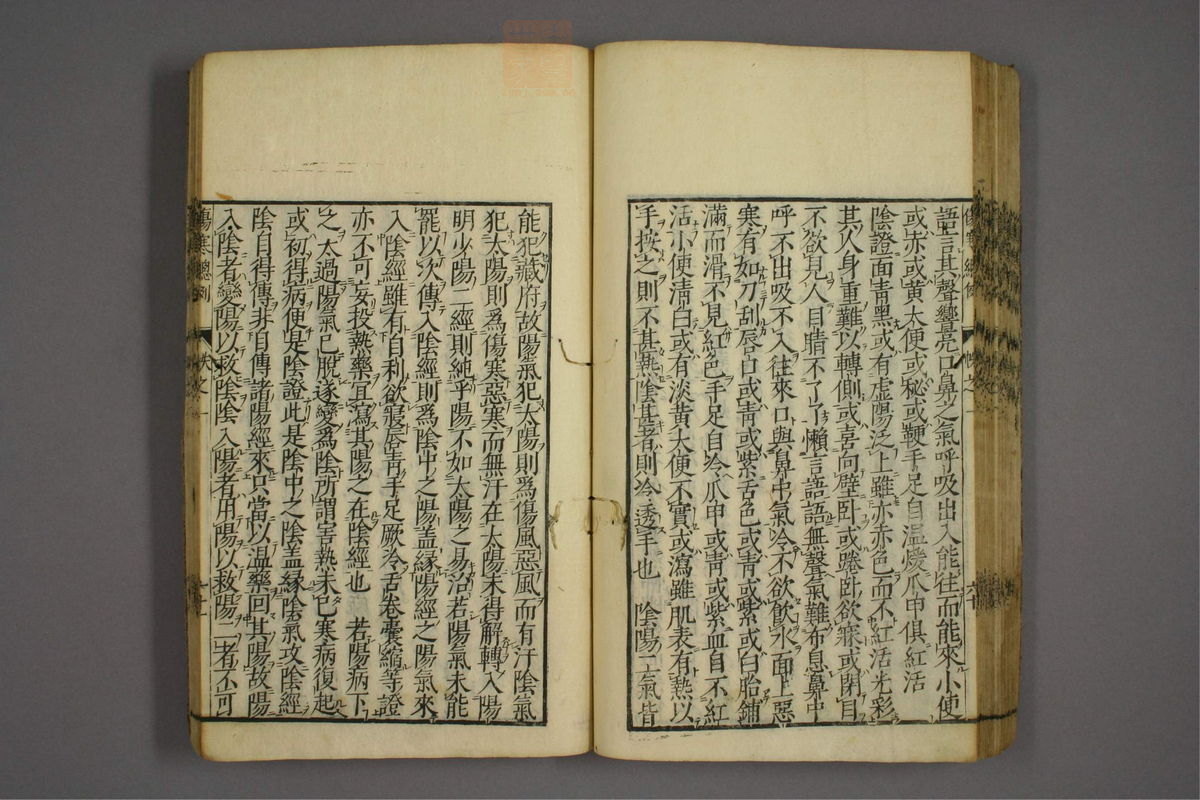 語言其聲響亮口鼻之氣呼吸出入能往而能來小便
或赤或黃大便或秘或鞕手足自溫煖爪甲俱紅活
陰證面青黑或有虛陽泛上雖亦赤色而不紅活光彩
其人身重難以轉側或喜向壁臥或踡臥欲寐或閉目
不欲見人目睛不了了懶言語語無聲氣難布息鼻中
呼不出吸不入往來口與鼻中氣冷不欲飲水面上惡
寒有如刀刮唇口或青或紫舌色或青或紫或白胎鋪
滿而滑不見紅色手足自冷爪甲或青或紫血自不紅
活小便清白或有淡黃大便不實或瀉雖肌表有熱以
手按之則不甚熱陰甚者則冷透手也 陰陽二氣皆
能犯藏府故陽氣犯太陽則爲傷風惡風而有汗陰氣
犯太陽則爲傷寒惡寒而無汗在太陽未得解轉入陽
明少陽二經則純乎陽不如太陽之易治若陽氣未能
罷以次傳入陰經則爲陰中之陽盖緣陽經之陽氣來
入陰經雖有自利欲寢唇青手足厥冷舌卷囊縮等證
亦不可妄投熱藥冝瀉其陽之在陰經也 若陽病下
之太過陽氣已脫遂變爲陰所謂害熱未已寒病復起
或初得病便是陰證此是陰中之陰盖緣陰氣攻陰經
陰自得傳非自傳諸陽經來只當以温藥回其陽故陽
入陰者變陽以救陰陰入陽者用陽以救陽二者不可
傷寒總例 帙之一